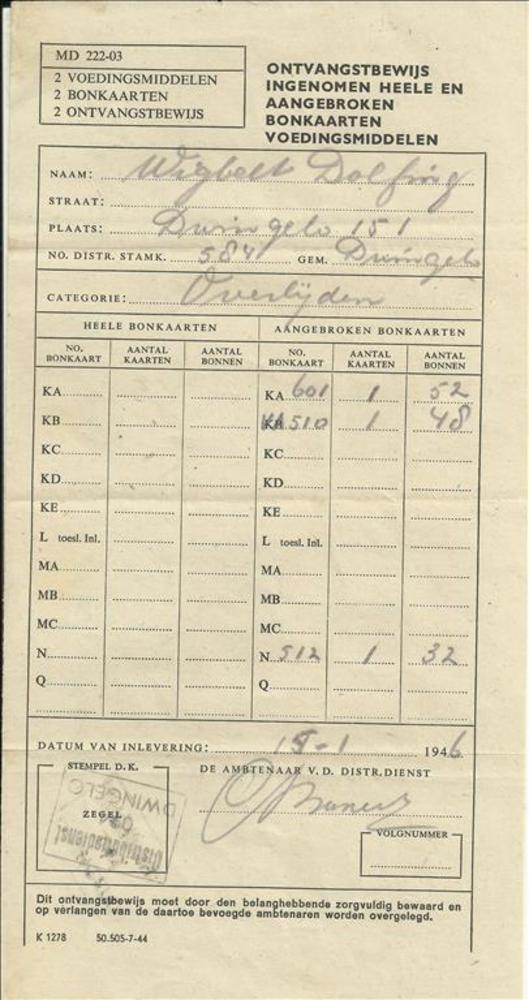 MD 222-03
2 VOEDINGSMIDDELEN
2 BONKAARTEN
2 ONTVANGSTBEWIJS
ONTVANGSTBEWIJS
INGENOMEN HEELE EN
AANGEBROKEN
BONKAARTEN
VOEDINGSMIDDELEN
NAAM: Wigbelt Dolfing
STRAAT:
PLAATS: Dwingelo 151
NO. DISTR. STAMK. 584 GEM. Dwingelo
CATEGORIE: Overlijden
HEELE BONKAARTEN AANGEBROKEN BONKAARTEN
NO. BONKAART AANTAL KAARTEN AANTAL BONNEN NO. BONKAART AANTAL KAARTEN AANTAL BONNEN
KA KA 601 1 52
KB 510 1 48
KC KC
KD KD
KE KE
L toesl. Inl. L toesl. Inl.
MA MA
MB MB
MC MC
N N 512 1 32
Q Q
DATUM VAN INLEVERING: 15-1 1946
STEMPEL D.K. DE AMBTENAAR V. D. DISTR.DIENST
DWINGELO
ZEGEL
Distributiedienst
VOLGNUMMER
Dit ontvangstbewijs moet door den belanghebbende zorgvuldig bewaard en
op verlangen van de daartoe bevoegde ambtenaren worden overgelegd.
K 1278 50.505-7-44